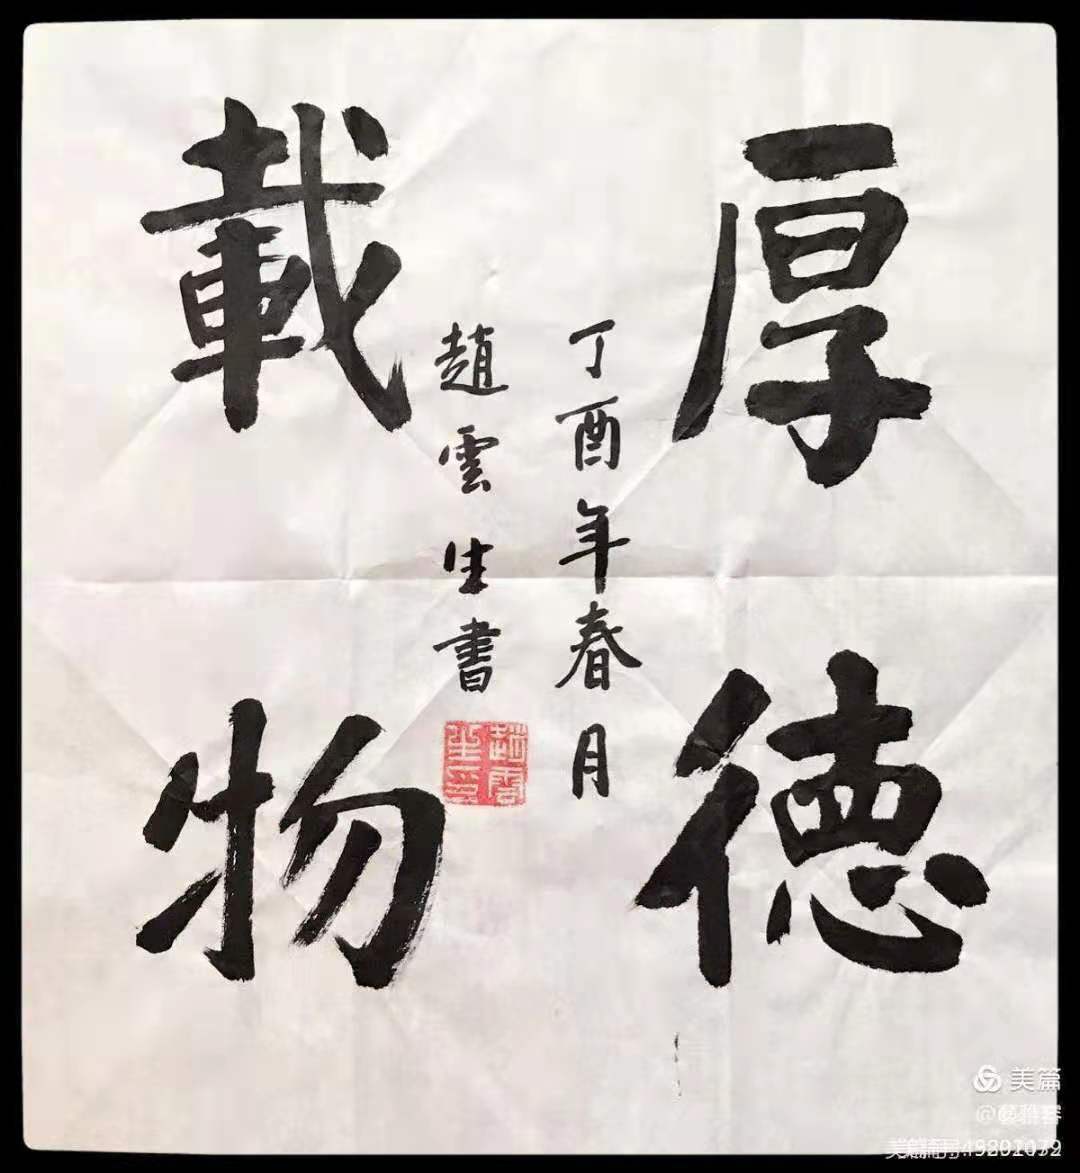 厚德
載物
丁酉年春月
趙雲生書
趙雲生印
美篇